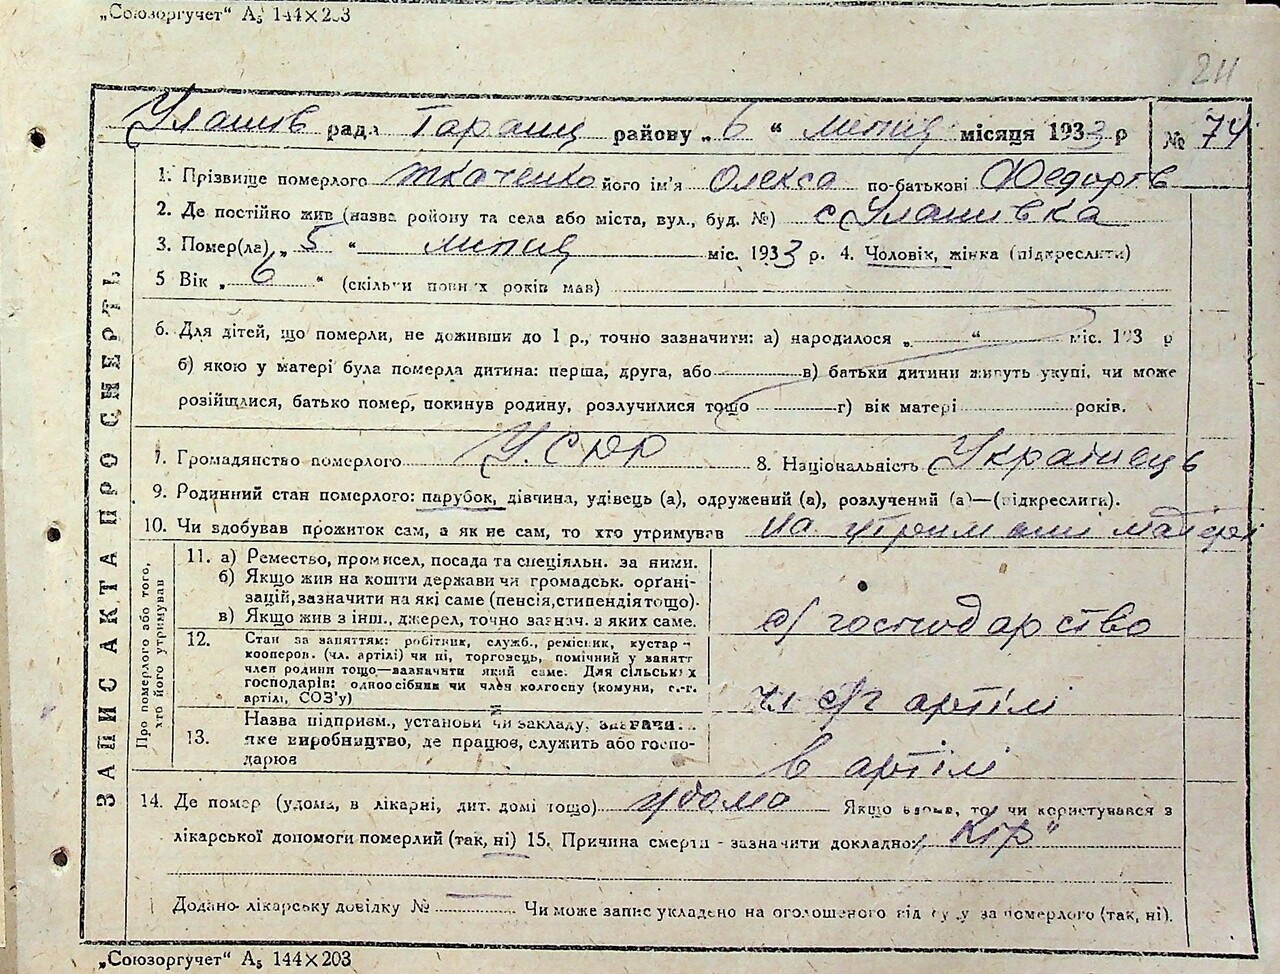 „Союзоргучет" А₅ 144×203
211
Улашів рада Таращ району „ 6 " липня місяця 1933 р № 74
ЗАПИС АКТА ПРО СМЕРТЬ
1. Прізвище померлого Ткаченко його ім'я Олекса по-батькові Федорів
2. Де постійно жив (назва району та села або міста, вул., буд. №) с Улашівка
3. Помер(ла) „ 5 " липня міс. 1933 р. 4. Чоловік, жінка (підкреслити)
5 Вік „ 6 " (скільки повних років мав)
6. Для дітей, що померли, не доживши до 1 р., точно зазначити: а) народилося „ " міс. 193 р
б) якою у матері була померла дитина: перша, друга, або в) батьки дитини живуть укупі, чи може
розійшлися, батько помер, покинув родину, розлучилися тощо г) вік матері років.
7. Громадянство померлого УСРР 8. Національність Українець
9. Родинний стан померлого: парубок, дівчина, удівець (а), одружений (а), розлучений (а)—(підкреслити).
10. Чи здобував прожиток сам, а як не сам, то хто утримував на утриманні матері
Про померлого або того, хто його утримував
11. а) Ремество, промисел, посада та спеціяльн. за ними.
б) Якщо жив на кошти держави чи громадськ. орґані-
зацій, зазначити на які саме (пенсія, стипендія тощо).
в) Якщо жив з інш., джерел, точно зазнач. з яких саме.
с/господарство
12. Стан за заняттям: робітник, служб., ремісник, кустар-
кооперов. (чл. артілі) чи ні, торговець, помічний у занятт
член родини тощо—зазначити який саме. Для сільських
господарів: одноосібник чи член колгоспу (комуни, с.-г.
артілі, СОЗ'у)
чл с/г артілі
13. Назва підприєм., установи чи закладу, зазначи..
яке виробництво, де працює, служить або госпо-
дарює
в артілі
14. Де помер (удома, в лікарні, дит. домі тощо) удома Якщо вдома, то чи користувався з
лікарської допомоги померлий (так, ні) 15. Причина смерти - зазначити докладно „Кір"
Додано лікарську довідку № — Чи може запис укладено на оголошеного від суду за померлого (так, ні).
„Союзоргучет" А₅ 144×203